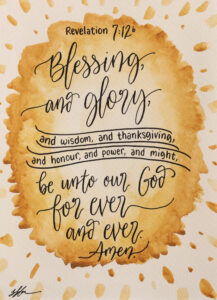 Revelation 7:12b
Blessing,
and glory,
and wisdom, and thanksgiving,
and honour, and power, and might,
be unto our God
for ever
and ever.
Amen